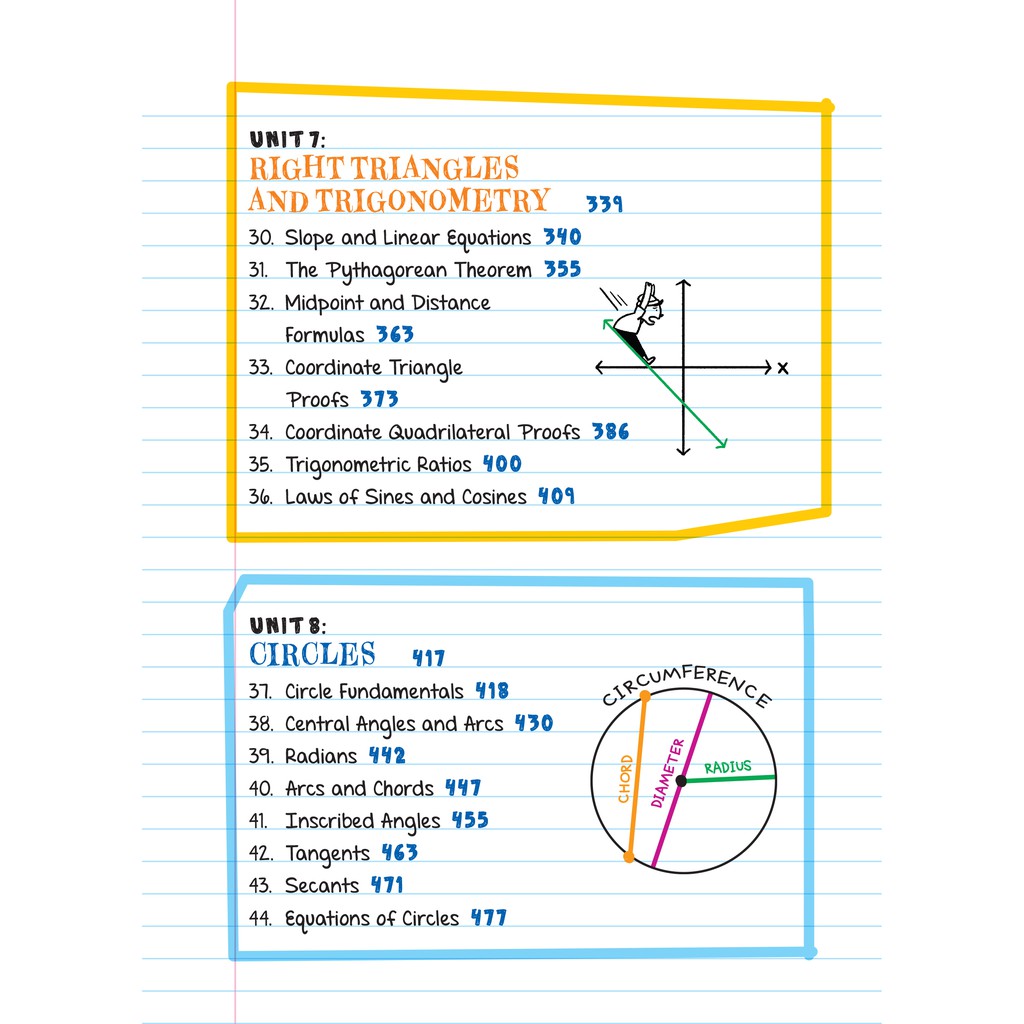 UNIT 7:
RIGHT TRIANGLES
AND TRIGONOMETRY 339
30. Slope and Linear Equations 340
31. The Pythagorean Theorem 355
32. Midpoint and Distance
Formulas 363
33. Coordinate Triangle
Proofs 373
34. Coordinate Quadrilateral Proofs 386
35. Trigonometric Ratios 400
36. Laws of Sines and Cosines 409
X
UNIT 8:
CIRCLES 417
37. Circle Fundamentals 418
38. Central Angles and Arcs 430
39. Radians 442
40. Arcs and Chords 447
41. Inscribed Angles 455
42. Tangents 463
43. Secants 471
44. Equations of Circles 477
CIRCUMFERENCE
CHORD
DIAMETER
RADIUS